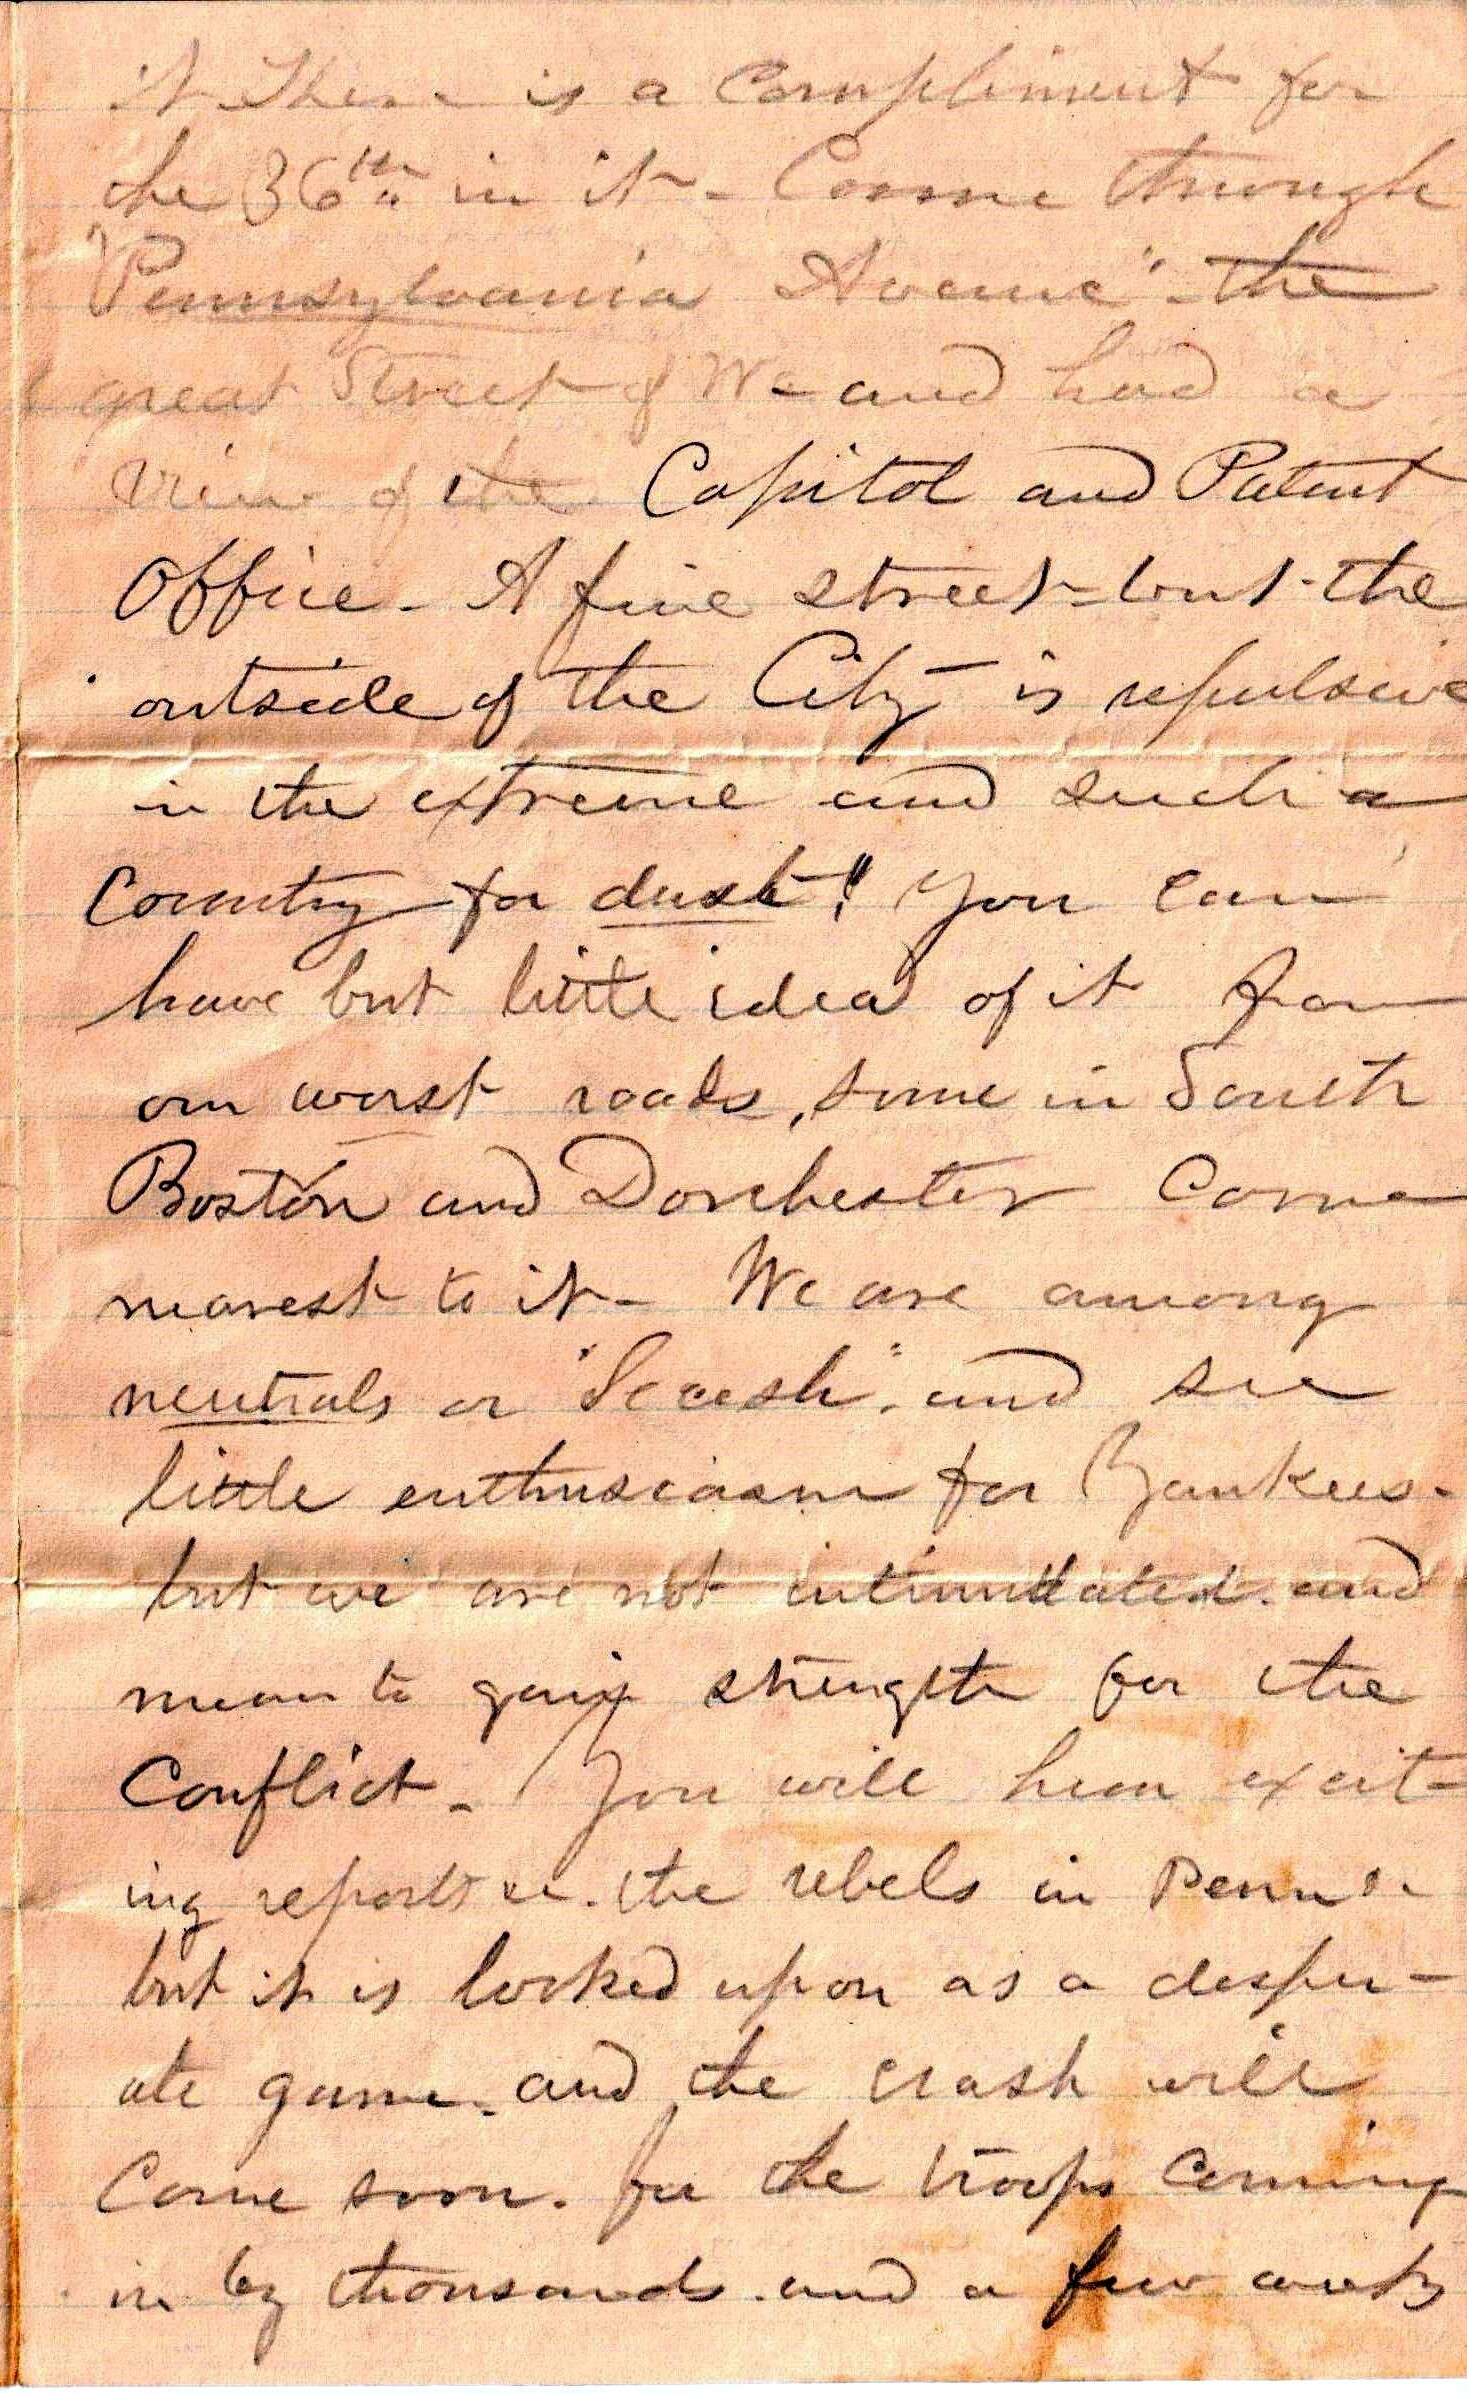 it There is a Compliment for
the 36th in it - Come through
"Pennsylvania Avenue" - the
great Street of W - and had a
view of the Capitol and Patent
Office - A fine street - but the
outside of the City - is repulsive
in the extreme and such a
Country for dust!! You can
have but little idea of it from
our worst roads, some in South
Boston and Dorchester Come
nearest to it - We are among
neutrals or "Secesh" and see
little enthusiasm for Yankees -
but we are not intimidated and
mean to gain strength for the
Conflict - You will hear excit-
ing reports the rebels in Penna -
but it is looked upon as a desper-
ate game - and the crash will
Come soon. for the troops coming
in by thousands. and a few weeks